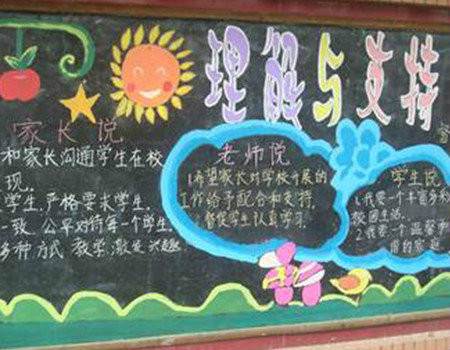 理解与支持
家长说
和家长沟通学生在校
现.
学生.严格要求学生.
一致.公平对待每一个学生.
多种方式教学,激发兴趣
老师说
1.希望家长对学校开展的
工作给予配合和支持.
督促学生认真学习.
学生说
1.我要一个丰富多彩
校园生活.
2.我要一个温馨和
谐的家庭